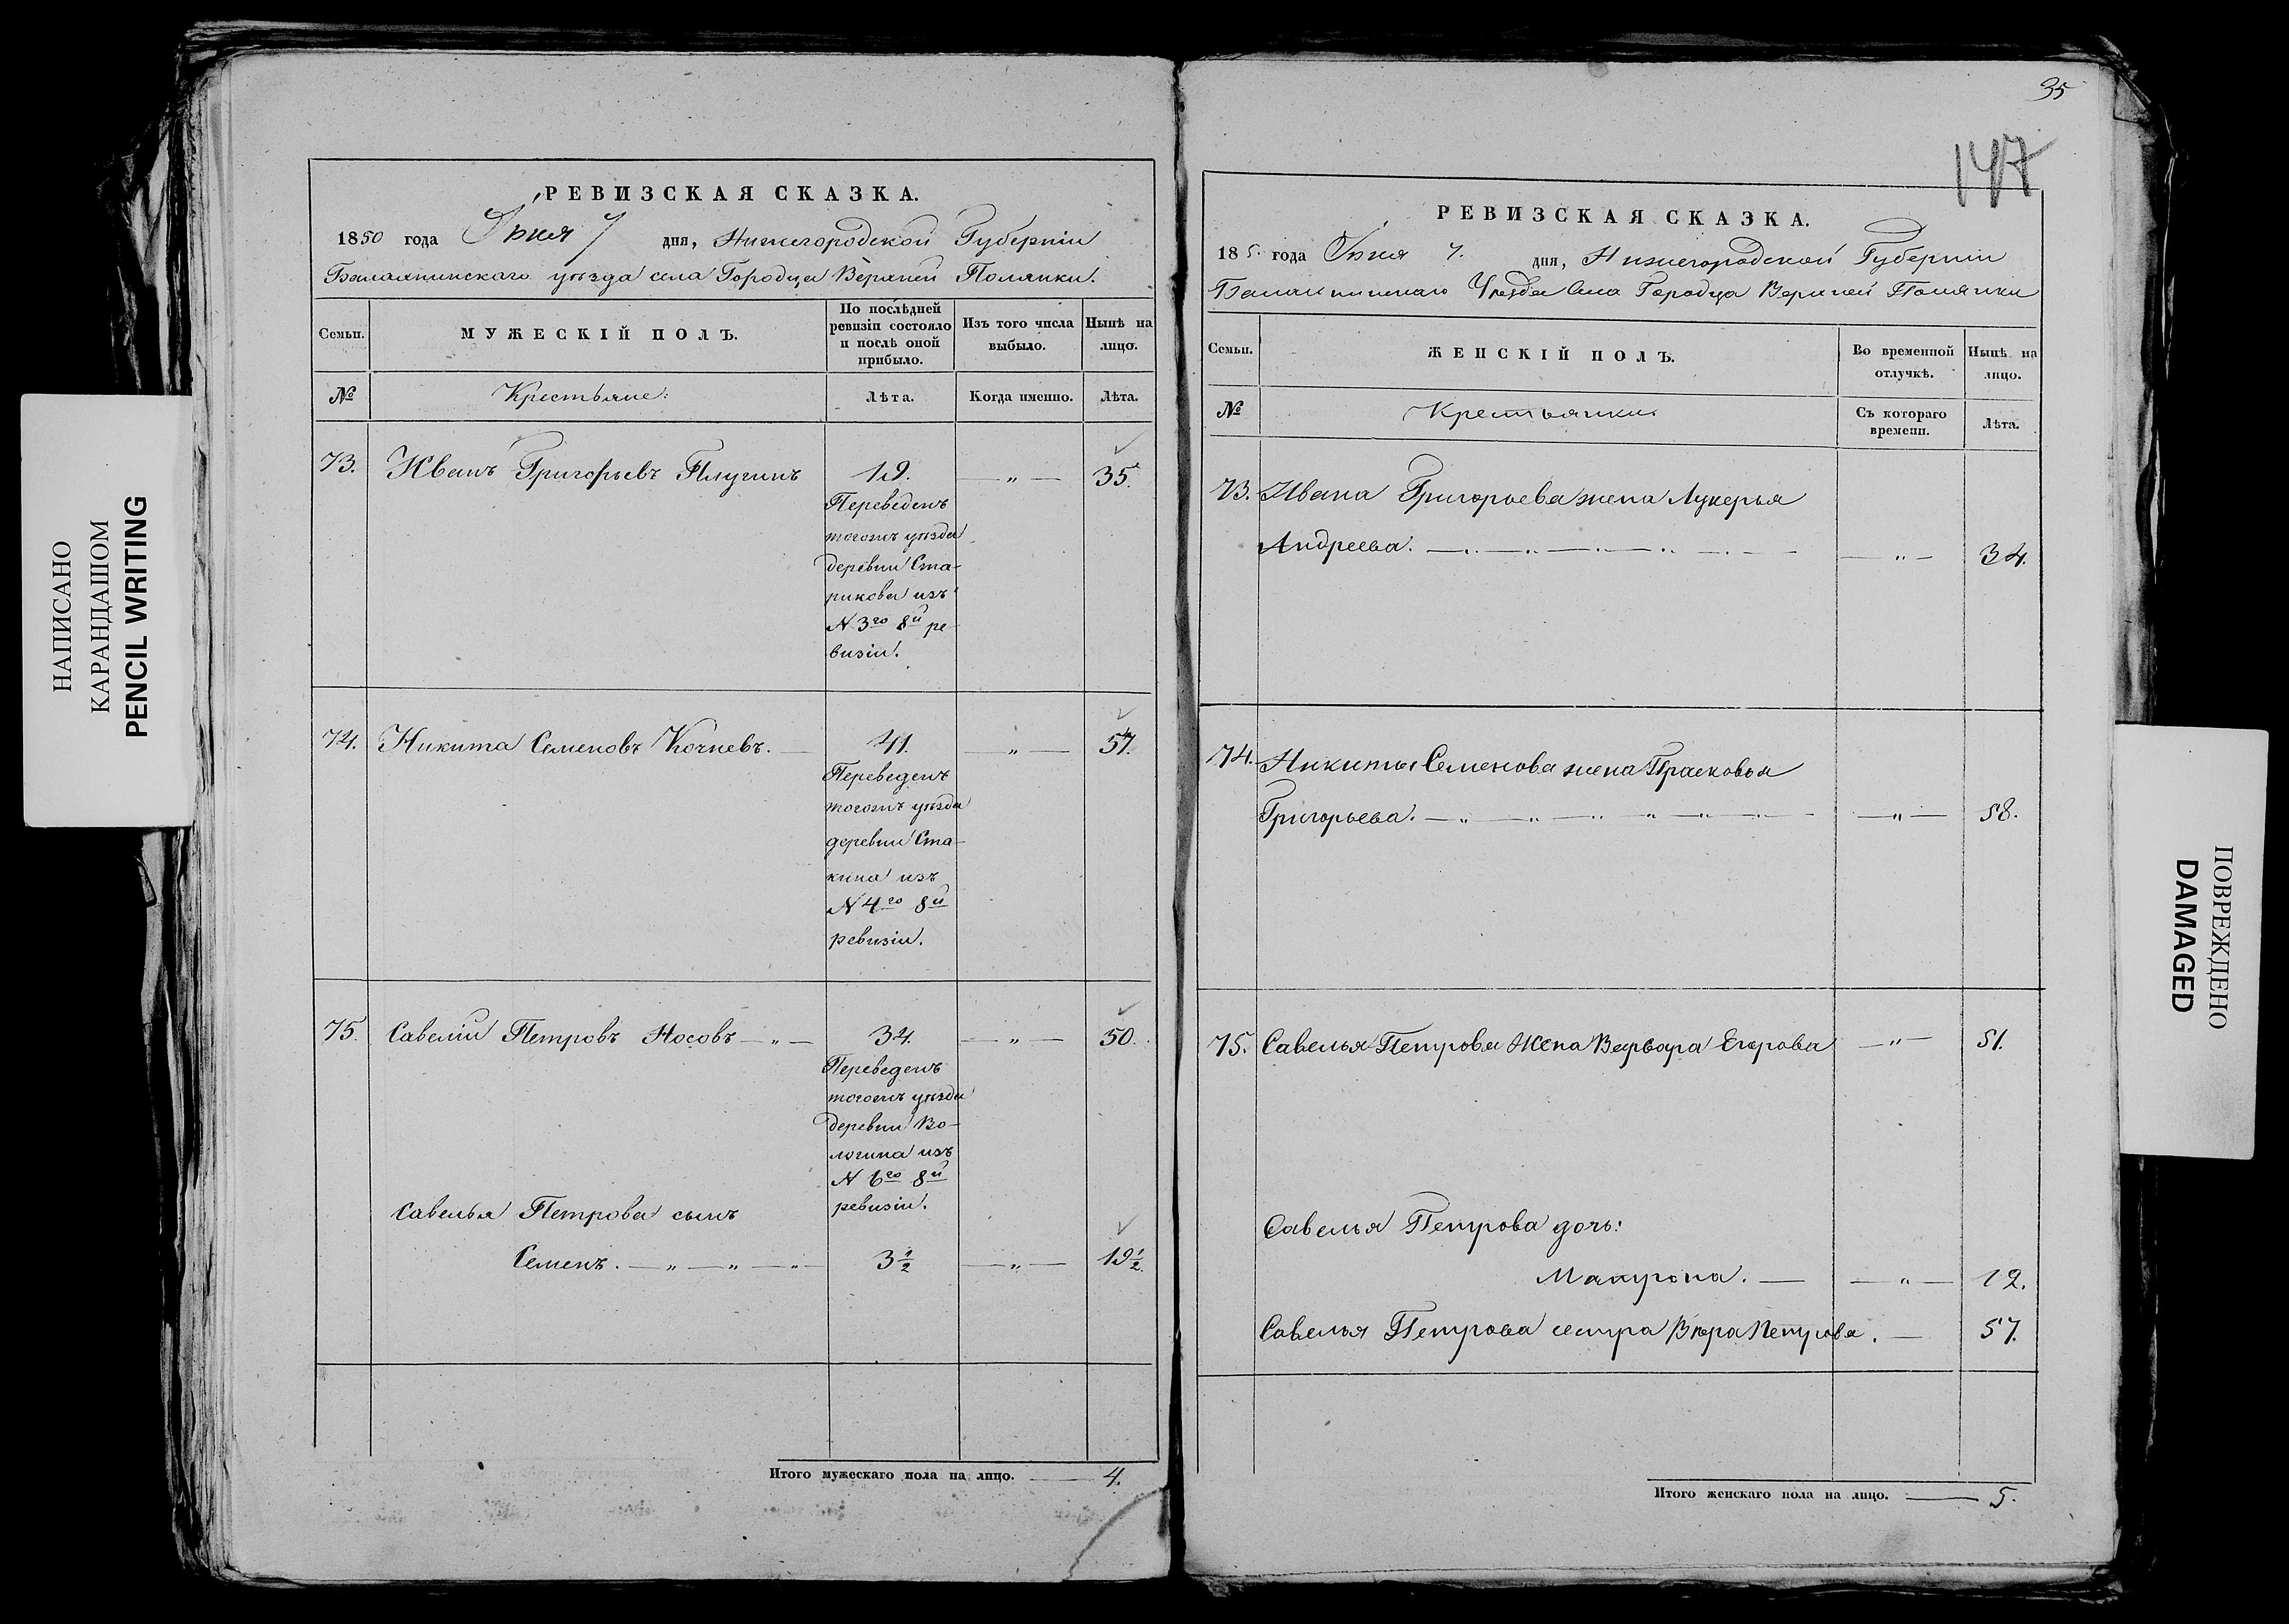 НАПИСАНО
КАРАНДАШОМ
PENCIL WRITING
РЕВИЗСКАЯ СКАЗКА.
1850 года Юня 7 дня, Нижегородской Губерніи
Балахнинскаго уѣзда села Городца Верхней Полянки.
Семьи.
МУЖЕСКІЙ ПОЛЪ.
По послѣдней ревизіи состояло и послѣ оной прибыло.
Изъ того числа выбыло.
Нынѣ на лицо.
№
Крестьяне:
Лѣта.
Когда именно.
Лѣта.
73. Иванъ Григорьевъ Плугинъ 19. — „ — 35.
Переведенъ
тогожъ уѣзда
деревни Ста-
рикова изъ
N 3го 8й ре-
визіи.
74. Никита Семеновъ Кочневъ. — 41. — „ — 57.
Переведенъ
тогожъ уѣзда
деревни Ста-
кина изъ
N 4го 8й
ревизіи.
75. Савелій Петровъ Носовъ — „ — 34. — „ — 50.
Переведенъ
тогожъ уѣзда
деревни Во-
логина изъ
N 6го 8й
ревизіи.
Савелья Петрова сынъ
Семенъ. — „ — „ — „ — 3 1/2 — „ — 19 1/2.
Итого мужескаго пола на лицо. — 4.
35
147
РЕВИЗСКАЯ СКАЗКА.
185. года Юня 7. дня, Нижегородской Губерніи
Балахнинскаго Уѣзда Села Городца Верхней Полянки
Семьи.
ЖЕНСКІЙ ПОЛЪ.
Во временной отлучкѣ.
Нынѣ на лицо.
№
Крестьянки.
Съ котораго времени.
Лѣта.
73. Ивана Григорьева жена Лукерья
Андреева. — „ — „ — „ — „ — „ — — „ — 34.
74. Никиты Семенова жена Прасковья
Григорьева. — „ — „ — „ — „ — „ — „ — — „ — 58.
75. Савелья Петрова Жена Варвара Егорова — „ — 51.
Савелья Петрова дочь:
Матрона. — — „ — 12.
Савелья Петрова сестра Вѣра Петрова. — 57.
Итого женскаго пола на лицо. — 5.
ПОВРЕЖДЕНО
DAMAGED